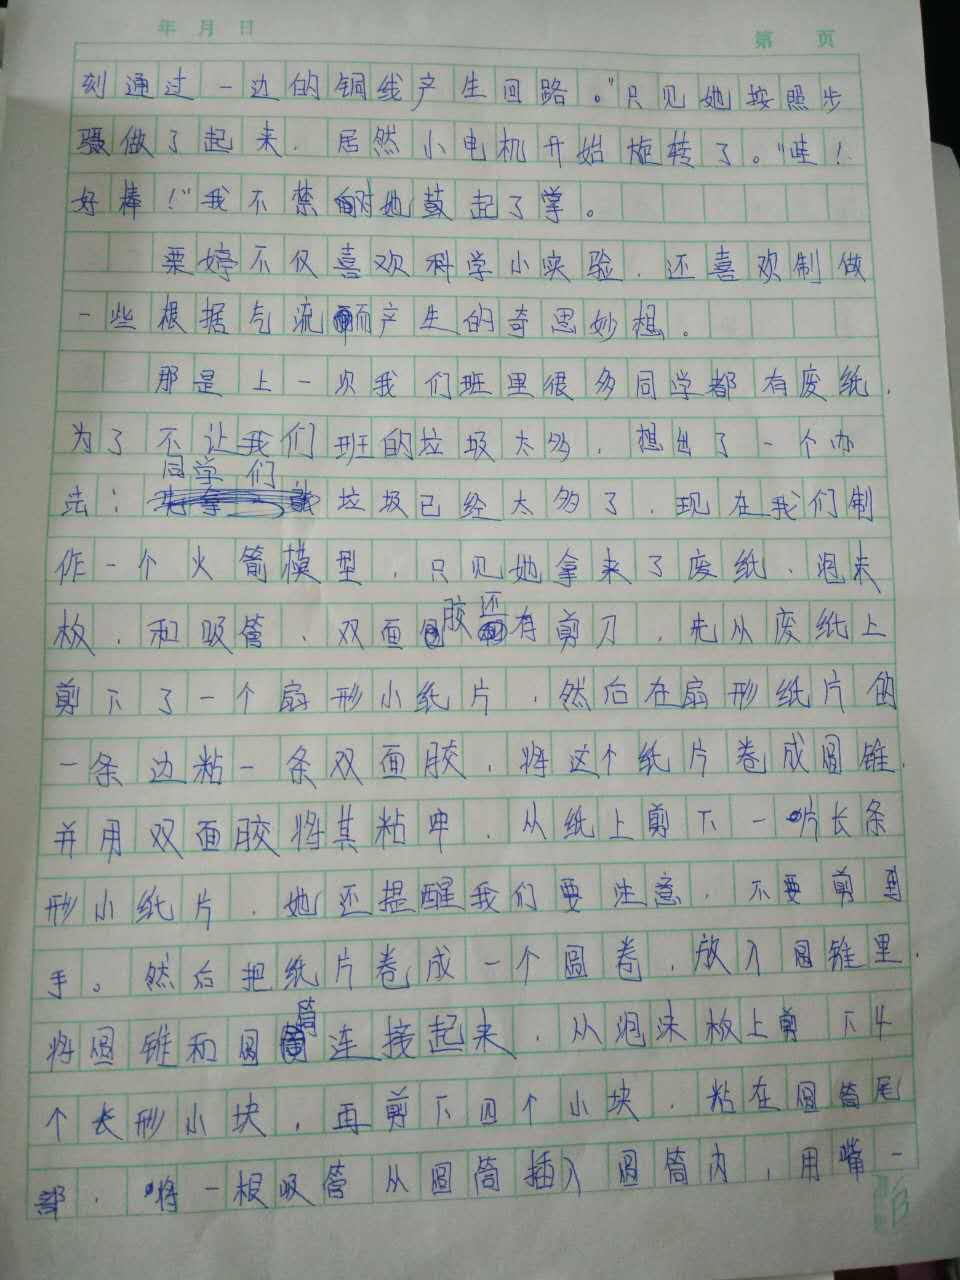 年 月 日
第 页
刻通过一边的铜线产生回路。"只见她按照步
骤做了起来，居然小电机开始旋转了。"哇！
好棒！"我不禁对她鼓起了掌。
栗婷不仅喜欢科学小实验，还喜欢制做
一些根据气流而产生的奇思妙想。
那是上一次我们班里很多同学都有废纸，
为了不让我们班的垃圾太多，想出了一个办
法：同学们垃圾已经太多了，现在我们制
作一个火箭模型，只见她拿来了废纸、泡沫
板，和吸管、双面胶还有剪刀，先从废纸上
剪下了一个扇形小纸片，然后在扇形纸片的
一条边粘一条双面胶，将这个纸片卷成圆锥，
并用双面胶将其粘牢，从纸上剪下一片长条
形小纸片，她还提醒我们要注意，不要剪到
手。然后把纸片卷成一个圆卷，放入圆锥里，
将圆锥和圆筒连接起来，从泡沫板上剪下4
个长形小块，再剪下四个小块，粘在圆筒尾
部，将一根吸管从圆筒插入圆筒内，用嘴一